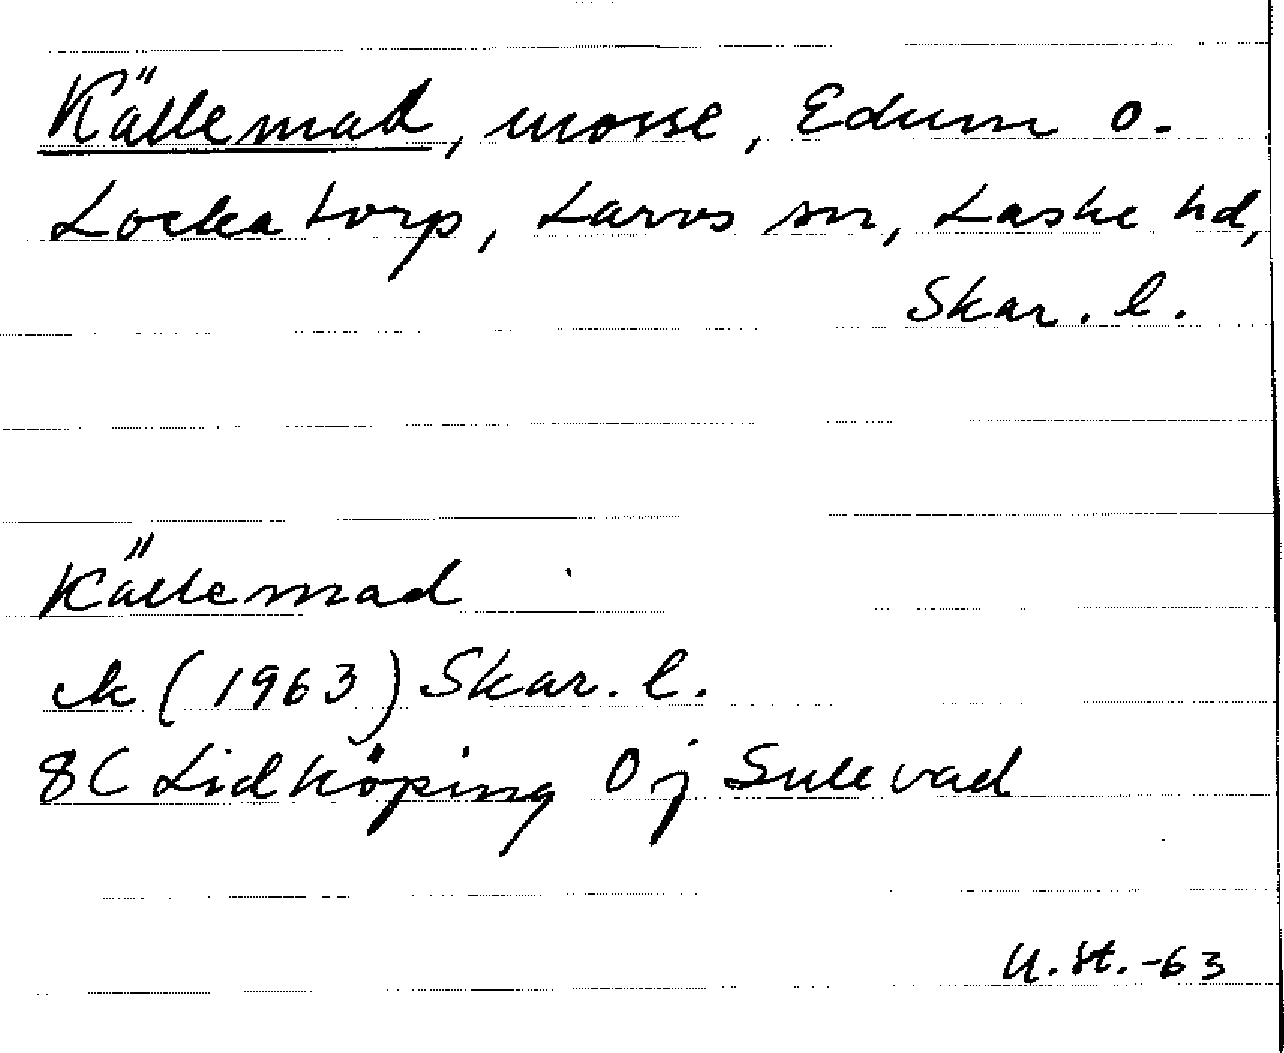 Källemad, mosse, Edum o.
Lockatorp, Larvs sn, Laske hd,
Skar. l.
Källemad
ek (1963) Skar. l.
8C Lidköping 0j Sulevad
U.St.-63